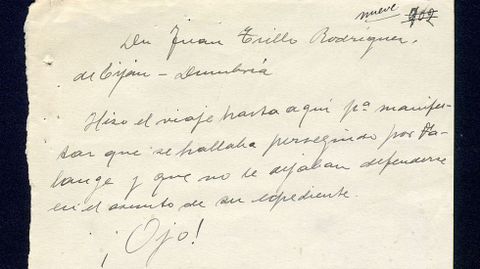 nueve
702
Dn Juan Trillo Rodriguez,
de Oijan - Dumbría
Hizo el viaje hasta aquí pª manifes-
tar que se hallaba perseguido por Fa-
lange y que no le dejaban defenderse
en el asunto de su expediente.
¡Ojo!